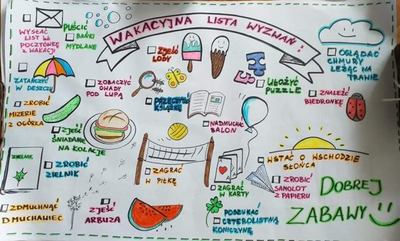 WAKACYJNA LISTA WYZWAŃ:
WYSŁAĆ
LIST LUB
POCZTÓWKĘ
Z WAKACJI
PUŚCIĆ
BAŃKI
MYDLANE
ZJEŚĆ
LODY
OGLĄDAĆ
CHMURY
LEŻĄC NA
TRAWIE
ZATAŃCZYĆ
W DESZCZU
ZOBACZYĆ
OWADY
POD LUPĄ
UŁOŻYĆ
PUZZLE
ZNALEŹĆ
BIEDRONKĘ
ZROBIĆ
MIZERIĘ
Z OGÓRKA
PRZECZYTAĆ
KSIĄŻKĘ
ZJEŚĆ
ŚNIADANIE
NA KOLACJĘ
NADMUCHAĆ
BALON
ZIELNIK
ZROBIĆ
ZIELNIK
ZAGRAĆ
W PIŁKĘ
WSTAĆ O WSCHODZIE
SŁOŃCA
ZAGRAĆ
W KARTY
ZROBIĆ
SAMOLOT
Z PAPIERU
ZDMUCHNĄĆ
DMUCHAWIEC
ZJEŚĆ
ARBUZA
POSZUKAĆ
CZTEROLISTNĄ
KONICZYNĘ
DOBREJ
ZABAWY